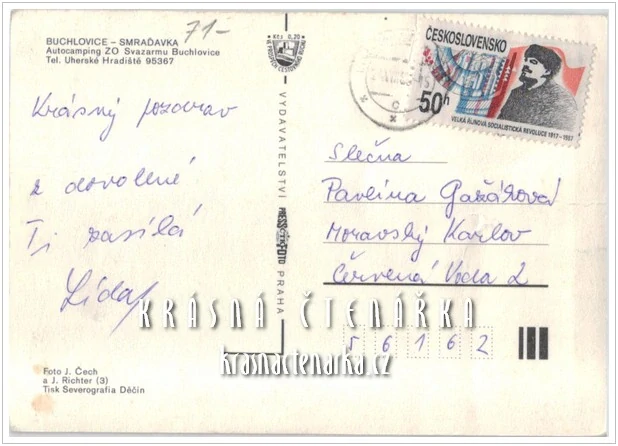 71-
BUCHLOVICE - SMRAĎAVKA
Autocamping ZO Svazarmu Buchlovice
Tel. Uherské Hradiště 95367
Krásný pozdrav
z dovolené
Ti zasílá
Lída
Foto J. Čech
a J. Richter (3)
Tisk Severografia Děčín
Kčs 0,20
VYDAVATELSTVÍ
PRESSFOTO
PRAHA
ČESKOSLOVENSKO
50h
VELKÁ ŘÍJNOVÁ SOCIALISTICKÁ REVOLUCE 1917-1987
Slečna
Pavlína
Moravský Karlov
Červená Voda 2
56162
KRÁSNÁ ČTENÁŘKA
krasnactenarka.cz